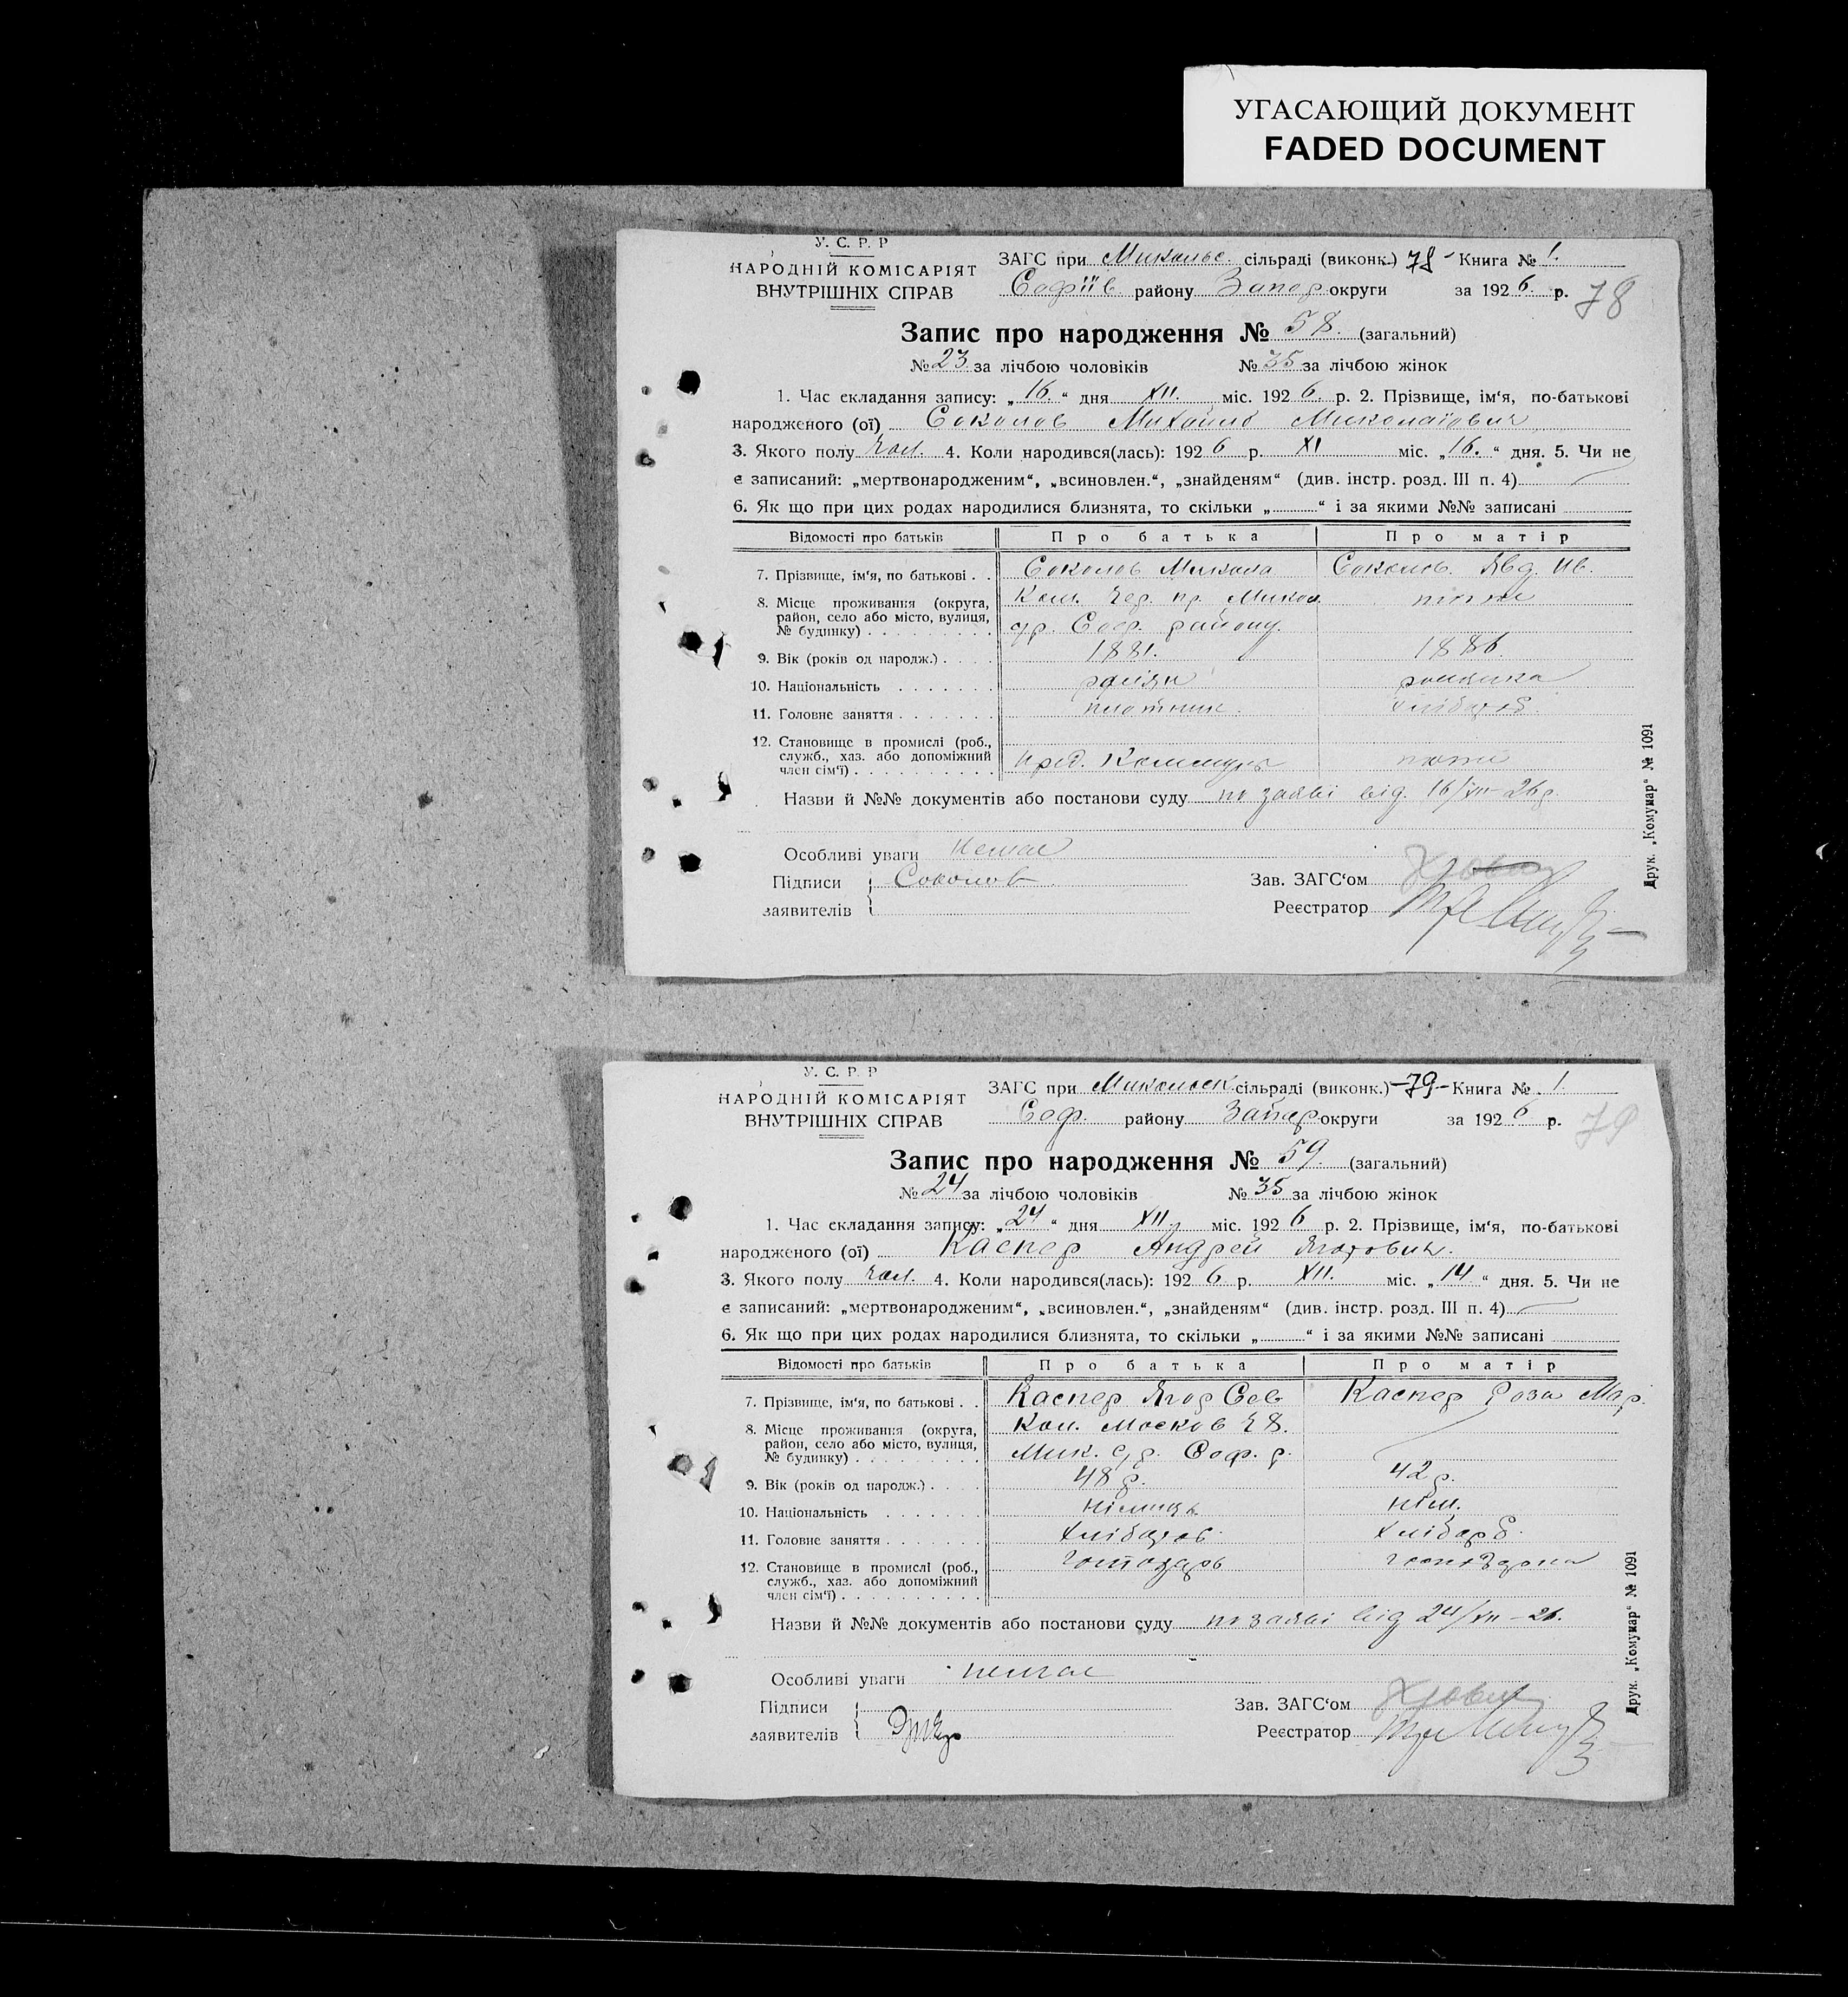 УГАСАЮЩИЙ ДОКУМЕНТ
FADED DOCUMENT
У. С. Р. Р
НАРОДНІЙ КОМІСАРІЯТ
ВНУТРІШНІХ СПРАВ
ЗАГС при Микольс. сільраді (виконк.) 78 - Книга № 1.
Софіїв. району Запор округи за 1926. р.
78
Запис про народження № 58. (загальний)
№ 23 за лічбою чоловіків № 35 за лічбою жінок
1. Час складання запису: „16.“ дня XII. міс. 1926 р. 2. Прізвище, ім‘я, по-батькові
народженого (ої) Соколов Михайло Миколаїович
3. Якого полу чол. 4. Коли народився(лась): 1926 р. XI міс. „16.“ дня. 5. Чи не
є записаний: „мертвонародженим“, „всиновлен.“, „знайденям“ (див. інстр. розд. III п. 4)
6. Як що при цих родах народилися близнята, то скільки „ “ і за якими №№ записані
Відомості про батьків Про батька Про матір
7. Прізвище, ім‘я, по батькові . . Соколов Микола Соколов. Явд. Ив.
8. Місце проживання (округа, район, село або місто, вулиця, № будинку) Ком. Чер. пр. Микол
Соф. району.
9. Вік (років од народж.) . . . . 1881. 1886.
10. Національність
11. Головне заняття . . . . . . . плотник. хлібороб.
12. Становище в промислі (роб., служб., хаз. або допоміжний член сім‘ї) пред. Коммуны
Назви й №№ документів або постанови суду по заяві від. 16/XII-26р.
Особливі уваги Немає
Підписи Соколов Зав. ЗАГС‘ом
заявителів Реєстратор
Друк. „Комунар“ № 1091
У. С. Р. Р
НАРОДНІЙ КОМІСАРІЯТ
ВНУТРІШНІХ СПРАВ
ЗАГС при Микольск. сільраді (виконк.) -79- Книга № 1.
Соф. району Запор округи за 1926 р.
79
Запис про народження № 59. (загальний)
№ 24 за лічбою чоловіків № 35 за лічбою жінок
1. Час складання запису: „24“ дня XII міс. 1926 р. 2. Прізвище, ім‘я, по-батькові
народженого (ої) Каспер Андрей Якович.
3. Якого полу чол. 4. Коли народився(лась): 1926 р. XII. міс. „14“ дня. 5. Чи не
є записаний: „мертвонародженим“, „всиновлен.“, „знайденям“ (див. інстр. розд. III п. 4)
6. Як що при цих родах народилися близнята, то скільки „ “ і за якими №№ записані
Відомості про батьків Про батька Про матір
7. Прізвище, ім‘я, по батькові . . Каспер Каспер Роза Мар.
8. Місце проживання (округа, район, село або місто, вулиця, № будинку) Кол. Москов
Мик. с/р. Соф. р.
9. Вік (років од народж.) . . . . 48 р. 42 р.
10. Національність . . . . . . . німець нім.
11. Головне заняття . . . . . . . хлібороб. хлібороб.
12. Становище в промислі (роб., служб., хаз. або допоміжний член сім‘ї) господарь господарка
Назви й №№ документів або постанови суду по заяві від 24/XII-26.
Особливі уваги немає
Підписи Зав. ЗАГС‘ом
заявителів Реєстратор
Друк. „Комунар“ № 1091